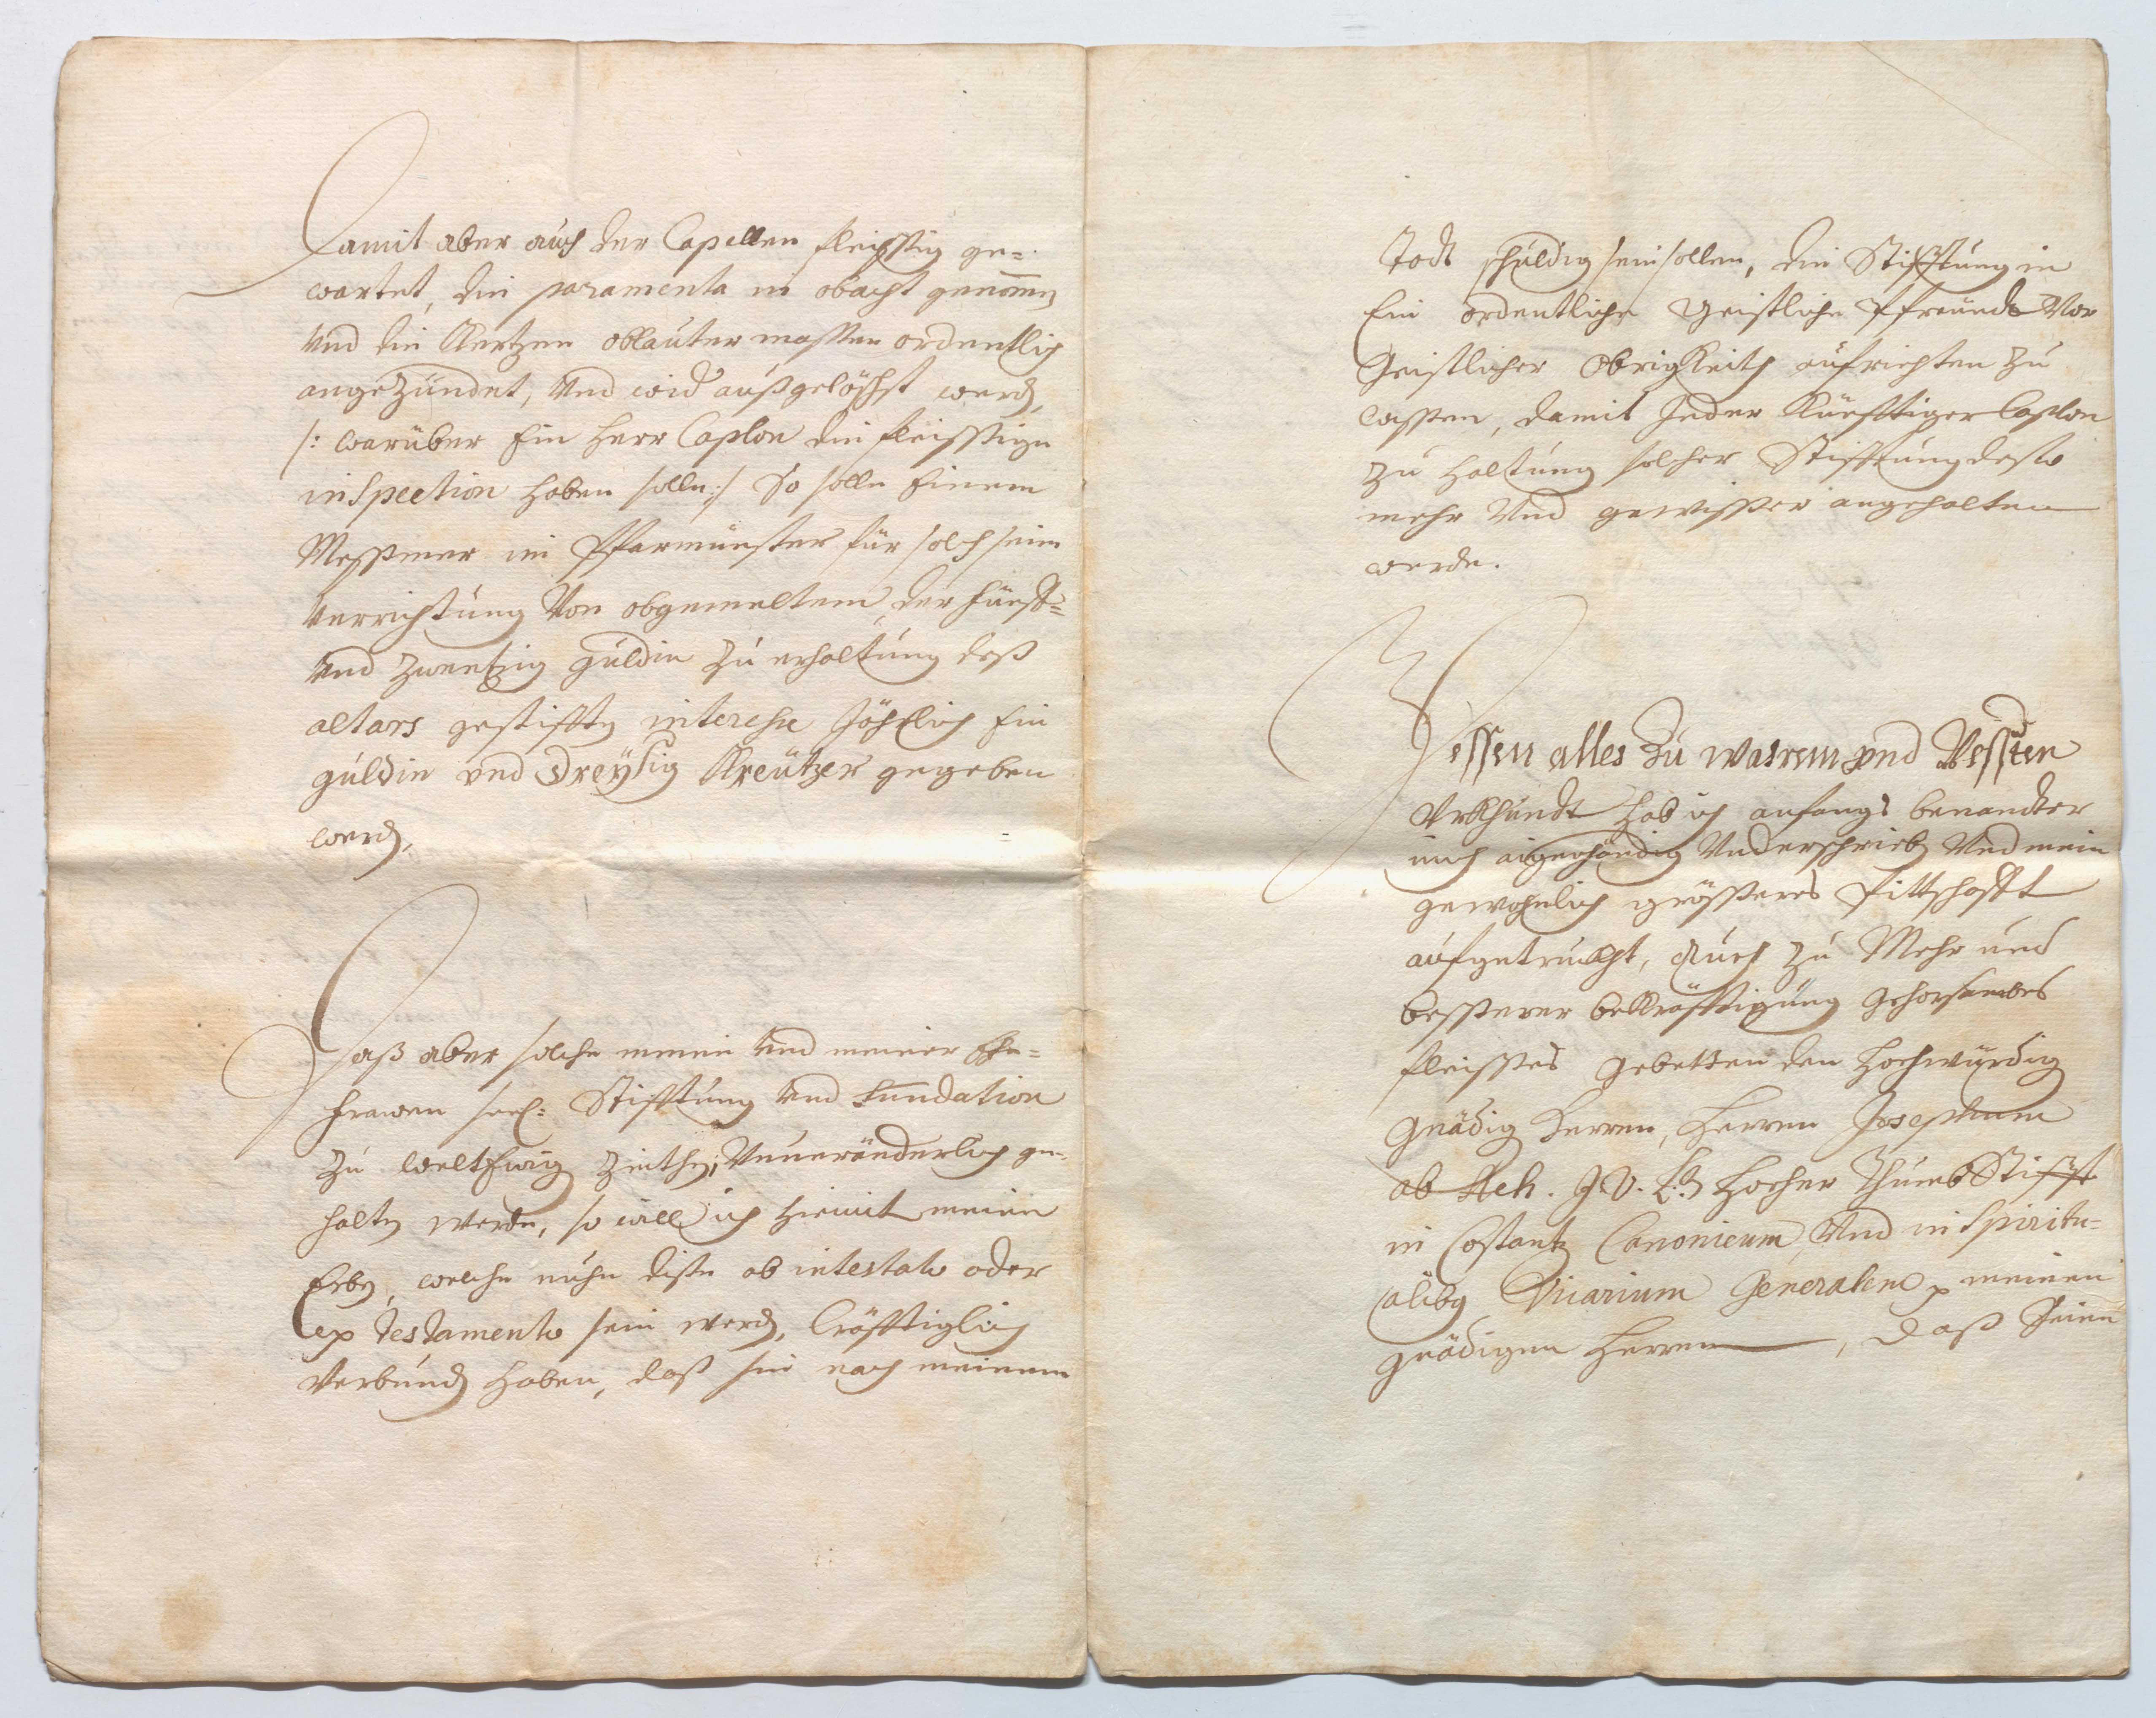 Damit aber auch der Capellen fleissig ge=
wartet, die paramenta in obacht genommen
Und die Kertzen oblauter massen ordentlich
angezündet, Und wid außgelöscht werden,
/: warüber Ein Herr Caplon die fleissige
inspection haben solle :/ So solle Einem
Messmer im Pfarrmünster für solch sein
Verrichtung Von obgemeltem der fünff=
Und zwentzig güldin zu erhaltung deß
altars gestifften interesse Jöhrlich Ein
güldin vnd dreysig Kreützer gegeben
werden.
Daß aber solche meine Und meiner Ehe=
frawen seel: Stifftung Und fundation
zu weltEwig Zeithen, Unueränderlich ge=
halten werde, so will ich hiemit meine
Erben, welche nuhn dise ab intestato oder
ex testamento sein werden, cröfftiglich
Verbunden haben, daß sie nach meinem
Todt schuldig sein sollen, die Stifftung in
Ein ordentliche Geistliche Pfreündt Vor
Geistlicher Obrigkeith aufrichten zu
lassen, damit Jeder Künfftiger Caplon
zu haltung solcher Stifftung desto
mehr Und gewisser angehalten
werde.
Dessen alles zu wahrem vnd Vessten
Vrkhundt hab ich anfangs benandter
mich aigenhändig Underschrieben Und mein
gewohnlich grösseres Pittschafft
aufgetruckht, Auch zu Mehr und
besserer bekröfftigung gehorsambes
fleisses gebetten den Hochwürdig
Gnädig Herren, Herren Josephum
ab Ach. J.V. L: Hocher ThumbStifft
in Costantz Canonicum Und in Spiritu=
alibus Vicarium Generalem p meinen
gnädigen Herren, daß Seine